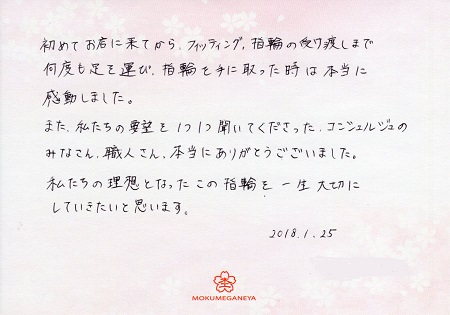 初めてお店に来てから、フィッティング、指輪の受け渡しまで
何度も足を運び、指輪を手に取った時は本当に
感動しました。
また、私たちの要望を1つ1つ聞いてくださった、コンシェルジュの
みなさん、職人さん、本当にありがとうございました。
私たちの理想となったこの指輪を一生大切に
していきたいと思います。
2018.1.25
MOKUMEGANEYA